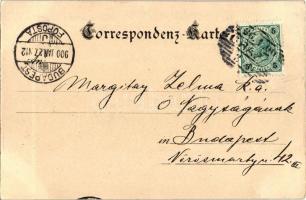 Correspondenz-Karte
BUDAPEST
900 JAN 27
FŐPOSTA
Margitay Zelma k.a.
Ő Nagyságának
in Budapest
Vörösmarty u. 42